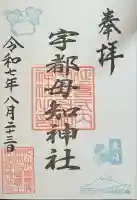 奉拝
宇都母知神社
令和七年八月二十三日